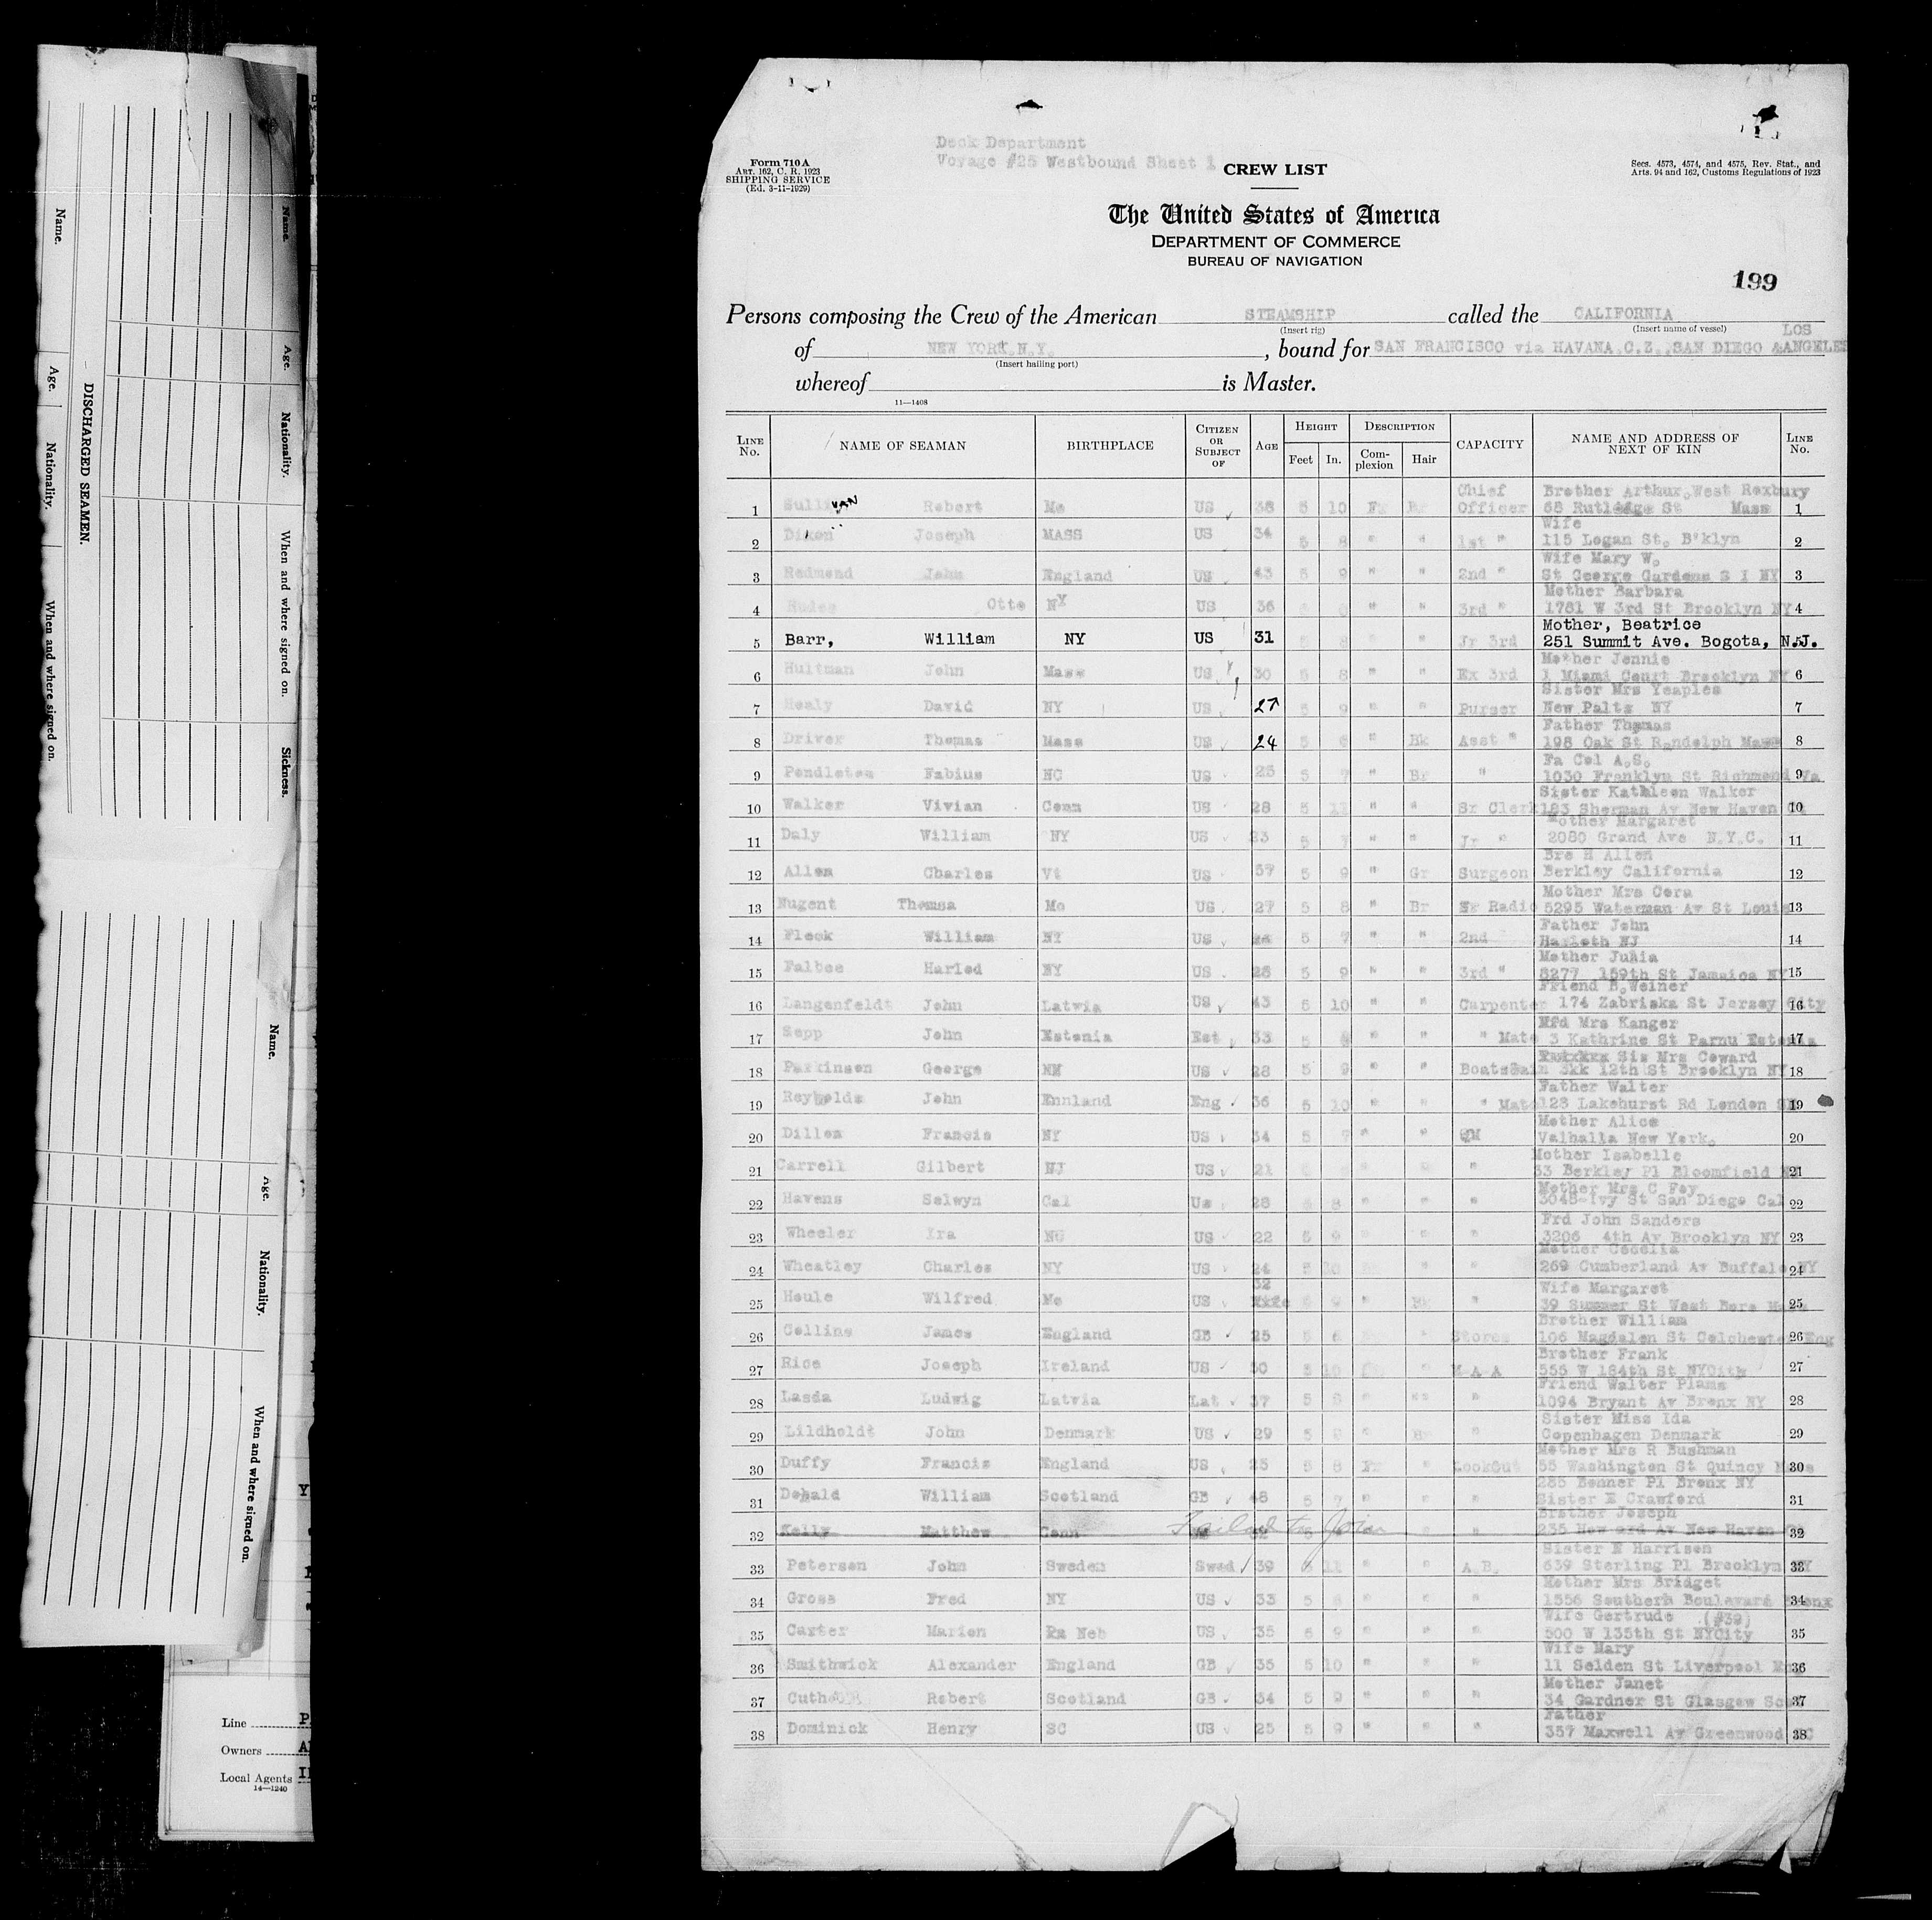 Name.
Age.
Nationality.
When and where signed on.
DISCHARGED SEAMEN.
Name.
Age.
Nationality.
When and where signed on.
Sickness.
Name.
Age.
Nationality.
When and where signed on.
Line
Owners
Local Agents
14—1240
Deck Department
Voyage #25 Westbound Sheet 1
Form 710 A
ART. 162, C. R. 1923
SHIPPING SERVICE
(Ed. 3-11-1929)
CREW LIST
Secs. 4573, 4574, and 4575, Rev. Stat., and
Arts. 94 and 162, Customs Regulations of 1923
The United States of America
DEPARTMENT OF COMMERCE
BUREAU OF NAVIGATION
199
Persons composing the Crew of the American STEAMSHIP called the CALIFORNIA
(Insert rig) (Insert name of vessel)
of NEW YORK.N.Y. , bound for SAN FRANCISCO via HAVANA.C.Z.,SAN DIEGO &ANGELES LOS
(Insert hailing port)
whereof is Master.
11—1408
LINE No. NAME OF SEAMAN BIRTHPLACE CITIZEN OR SUBJECT OF AGE HEIGHT Feet In. DESCRIPTION Complexion Hair CAPACITY NAME AND ADDRESS OF NEXT OF KIN LINE No.
1 Sullivan Robert Me US 38 5 10 Chief Officer Brother Arthur.West Roxbury 68 Rutledge St Mass 1
2 Dixon Joseph MASS US 34 5 8 " " 1st " Wife 115 Logan St. B'klyn 2
3 Redmond John England US 43 5 9 " " 2nd " Wife Mary W. St George Gardens S I NY 3
4 Otto NY US 36 " " 3rd " Mother Barbara 1781 W 3rd St Brooklyn NY 4
5 Barr, William NY US 31 5 8 " Jr 3rd Mother, Beatrice 251 Summit Ave. Bogota, N.J. 5
6 Hultman John Mass US 30 5 8 " " Ex 3rd Mother Jennie 1 Miami Court Brooklyn NY 6
7 Healy David NY US 27 5 9 " " Purser Sister Mrs Yeaples New Paltz NY 7
8 Driver Thomas Mass US 24 5 6 " Bk Asst " Father Thomas 198 Oak St Randolph Mass 8
9 Pendleton Fabius NC US 25 5 7 " Br " Fa Col A.S. 1030 Franklyn St Richmond Va 9
10 Walker Vivian Conn US 28 5 " " Sr Clerk Sister Kathleen Walker 183 Sherman Av New Haven 10
11 Daly William NY US 23 5 7 " " Jr " Mother Margaret 2080 Grand Ave N.Y.C. 11
12 Allen Charles Vt US 57 5 9 " Gr Surgeon Bro H Allen Berkley California 12
13 Nugent Thomsa Mo US 27 5 8 " Br Radio Mother Mrs Cora 5295 Waterman Av St Louis 13
14 Fleck William US 5 7 " " 2nd Father John NJ 14
15 Falbee Harled NY US 28 5 9 " " 3rd " Mother Julia 8277 159th St Jamaica NY 15
16 Langenfeldt John Latwia US 43 5 10 " " Carpenter Friend B.Weiner 174 Zabriska St Jersey City 16
17 Sepp John Estonia Est 33 5 " " " Mate Mrs Kanger 3 Kathrine St Parnu Estonia 17
18 Parkinson George US 28 5 9 " " Boatswain Sis Mrs Coward 12th St Brooklyn NY 18
19 Reynolds John Ennland Eng 36 5 10 " " " Mate Father Walter 128 Lakehurst Rd London 19
20 Dillon Francis NY US 34 5 9 " " QM Mother Alice Valhalla New York. 20
21 Carrell Gilbert NJ US 21 " Mother Isabelle 33 Berkley Pl Bloomfield 21
22 Havens Selwyn Cal Us 28 8 " " " Mother Mrs C Fey 3048-Ivy St San Diego Cal 22
23 Wheeler Ira NC US 22 5 9 " " " Frd John Sanders 3206 4th Av Brooklyn NY 23
24 Wheatley Charles NY US 24 5 10 " " Mother Cecelia 269 Cumberland Av Buffalo NY 24
25 Houle Wilfred Me US 32 9 " " Wife Margaret 39 Summer St West Boro 25
26 Collins James England GB 25 5 6 " Stores Brother William 106 Magdalen St Colchester Eng 26
27 Rice Joseph Ireland US 5 10 " M A A Brother Frank 555 W 184th St NYCity 27
28 Lasda Ludwig Latvia Lat 37 5 " " " Friend Walter Plams 1094 Bryant Av Bronx NY 28
29 Lildholdt John Denmark US 29 5 " Br " Sister Miss Ida Copenhagen Denmark 29
30 Duffy Francis England US 25 5 8 " Lookout Mother Mrs R Bushman 55 Washington St Quincy Mass 30
31 Donald William Scotland GB 48 5 7 " " " 285 Bonner Pl Bronx NY Sister E Crawford 31
32 Kelly Matthew Conn Failed to Join " Brother Joseph 235 Howard Av New Haven 32
33 Peterson John Sweden Swed 39 11 " " A.B. Sister N Harrison 639 Sterling Pl Brooklyn NY 33
34 Gross Fred NY US 33 5 " " " Mother Mrs Bridget 1556 Southern Boulevard Bronx 34
35 Carter Marion Neb US 35 5 9 " " " Wife Gertrude (#39) 500 W 135th St NYCity 35
36 Smithwick Alexander England GB 35 5 10 " " " Wife Mary 11 Selden St Liverpool 36
37 Robert Scotland GB 34 5 9 " " " Mother Janet 34 Gardner St Glasgow 37
38 Dominick Henry SC US 25 5 9 " " " Father 357 Maxwell Av Greenwood 38